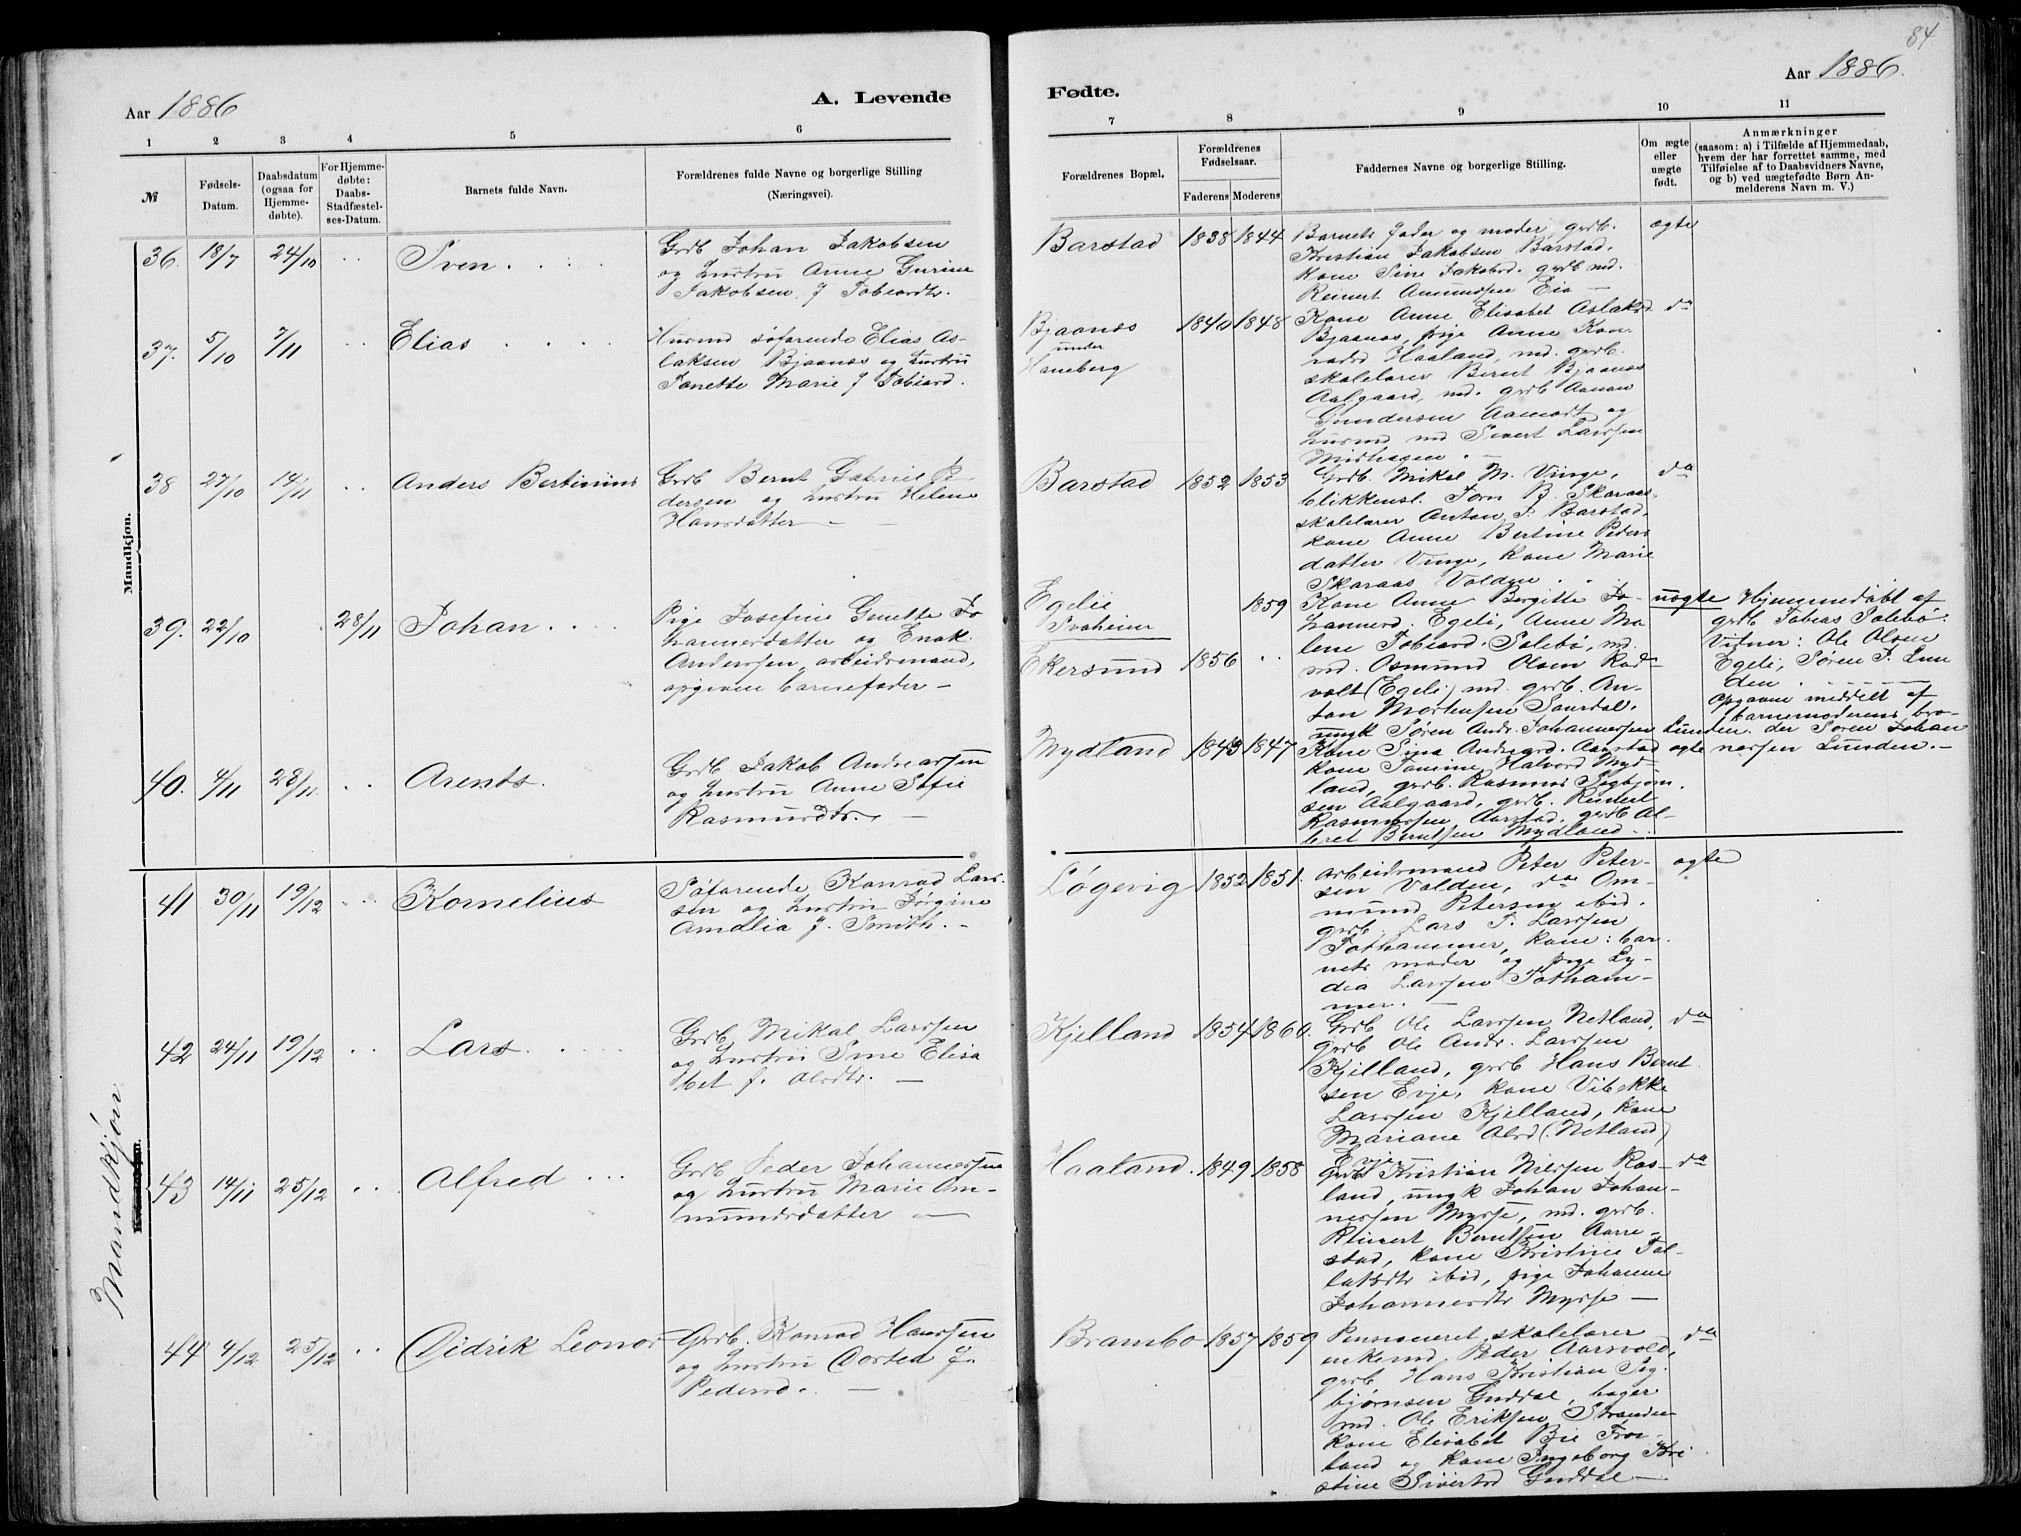 84
Aar 1886
A. Levende
Fødte.
Aar 1886.
1
2
3
4
5
6
7
8
9
10
11
№
Fødsels-
Datum.
Daabsdatum
(ogsaa for
Hjemme-
døbte).
For Hjemme-
døbte:
Daabs-
Stadfæstel-
ses-Datum.
Barnets fulde Navn.
Forældrenes fulde Navne og borgerlige Stilling
(Næringsvei).
Forældrenes Bopæl,
Forældrenes
Fødselsaar.
Faderens
Moderens
Faddernes Navne og borgerlige Stilling.
Om ægte
eller
uægte
født.
Anmærkninger
(saasom: a) i Tilfælde af Hjemmedaab,
hvem der har forrettet samme, med
Tilføielse af to Daabsvidners Navne,
og b) ved uægtefødte Børn An-
melderens Navn m. V.)
Mandkjøn.
36. 18/7 24/10 Sven.
Grdb Johan Jakobsen
og hustru Anne Gurine
Jakobsen f Tobiasdtr.
Barstad 1838 1844
Barnets fader og moder, grdb.
Kristian Jakobsen Barstad,
kone Sine Jakobsd. grdb md.
Reinert Amundsen Eia
ægte
37. 5/10 7/11 Elias
Husmd søfarende Elias As-
laksen Bjaanæs og hustru
Janette Marie f Tobiasd.
Bjaanæs
under
Haneberg
1840 1848
Kone Anne Elisabet Aslaksd.
Bjaanæs, pige Anne Kon-
radsd Haaland, md. grdb.
skolelærer Bernt Bjaanæs
Aalgaard, md. grdb Aanon
Gundersen Aamodt og
husmd md Sivert Larssen
Midhagen.
do
38 27/10 14/11 Anders Bertinius
Grdb Bernt Gabriel Pe-
dersen og hustru Helene
Hansdatter
Barstad 1852 1853
Grdb. Mikal M. Vinge,
blikkensl. Jørn B. Skaraas,
skolelærer Anton J. Barstad,
kone Anne Bertine Peders
datter Vinge, kone Marie
Skaraas Volden.
do
39. 22/10 28/11 Johan
Pige Josefine Genette Jo
hannesdatter og Enok
Anderssen, arbeidsmand,
opgiven barnefader
Egelie
Svaheim
Ekersund
1856
1859
Kone Anne Bergitte Jo-
hannesd. Egeli, Anne Ma-
lene Tobiasd. Polebø, md.
md. Osmund Olsen Rod-
volt (Egeli) md. grdb. An-
ton Mortensen Saurdal,
ungk Søren Andr. Johannessen Lunden.
uægte
Hjemmedøbt af
grdb Tobias Polebø.
Vitner: Ole Olsen
Egeli, Søren J. Lun
den.
Opgave meddelt af
barnemoderens bro-
der Søren Johan
nessen Lunden.
40. 4/11 28/11. Arents.
Grdb Jakob Andreassen
og hustru Anne Sofie
Rasmusdtr.
Mydland 1843 1847
Kone Sina Andreasd. Aarstad
kone Tomine Halvord Myd-
land, grdb. Rasmus Sigbjørn
sen Aalgaard, grdb. Reinert
Rasmussen Aarstad, grdb Al-
bret Berntsen Mydland
ægte
Mandkjøn
41 30/11 19/12 Kornelius
Søfarende Konrad Lars-
sen og hustru Jørgine
Amalia f. Smith.
Løgevig 1852 1851.
arbeidsmand Peter Peter-
sen Volden, do Om-
mund Petersen ibid.
grdb. Lars T. Larssen
Tothammer, kone: bar-
nets moder og pige Ly-
dia Larssen Totham-
mer.
ægte
42 24/11 19/12 Lars
Grdb Mikal Larssen
og hustru Sine Elisa
bet f. Olsdtr.
Kjelland 1854 1860.
Grdb Ole Larssen Netland,
grdb Ole Andr. Larssen
Kjelland, grdb Hans Bernt
sen Evje, kone Vibekke
Larssen Kjelland, kone
Mariane Olsd (Netland)
Evje
do
43 14/11 25/12 Alfred
Grdb Peder Johannessen
og hustru Marie Om-
mundsdatter
Haaland. 1849 1858
grdb Kristian Nilssen Ras-
land, ungk Johan Johan-
nessen Mysse, md. grdb.
Reinert Berntsen Aarre-
stad, kone Kristine Tol-
laksdtr ibid, pige Johanne
Johannesdtr Mysse
do
44 4/12 25/12 Didrik Leonor
Grdb. Konrad Hanssen
og hustru Dorted f.
Pedersd.
Brambo 1857 1859
Pensioneret skolelærer
enkemd. Peder Aarsvold,
grdb Hans Kristian Sig-
bjørnsen Guddal, bager
md. Ole Eriksen Stranden
kone Elisabet Bie Fros-
land og kone Ingeborg Kri
stine Sivertsd Guddal
do